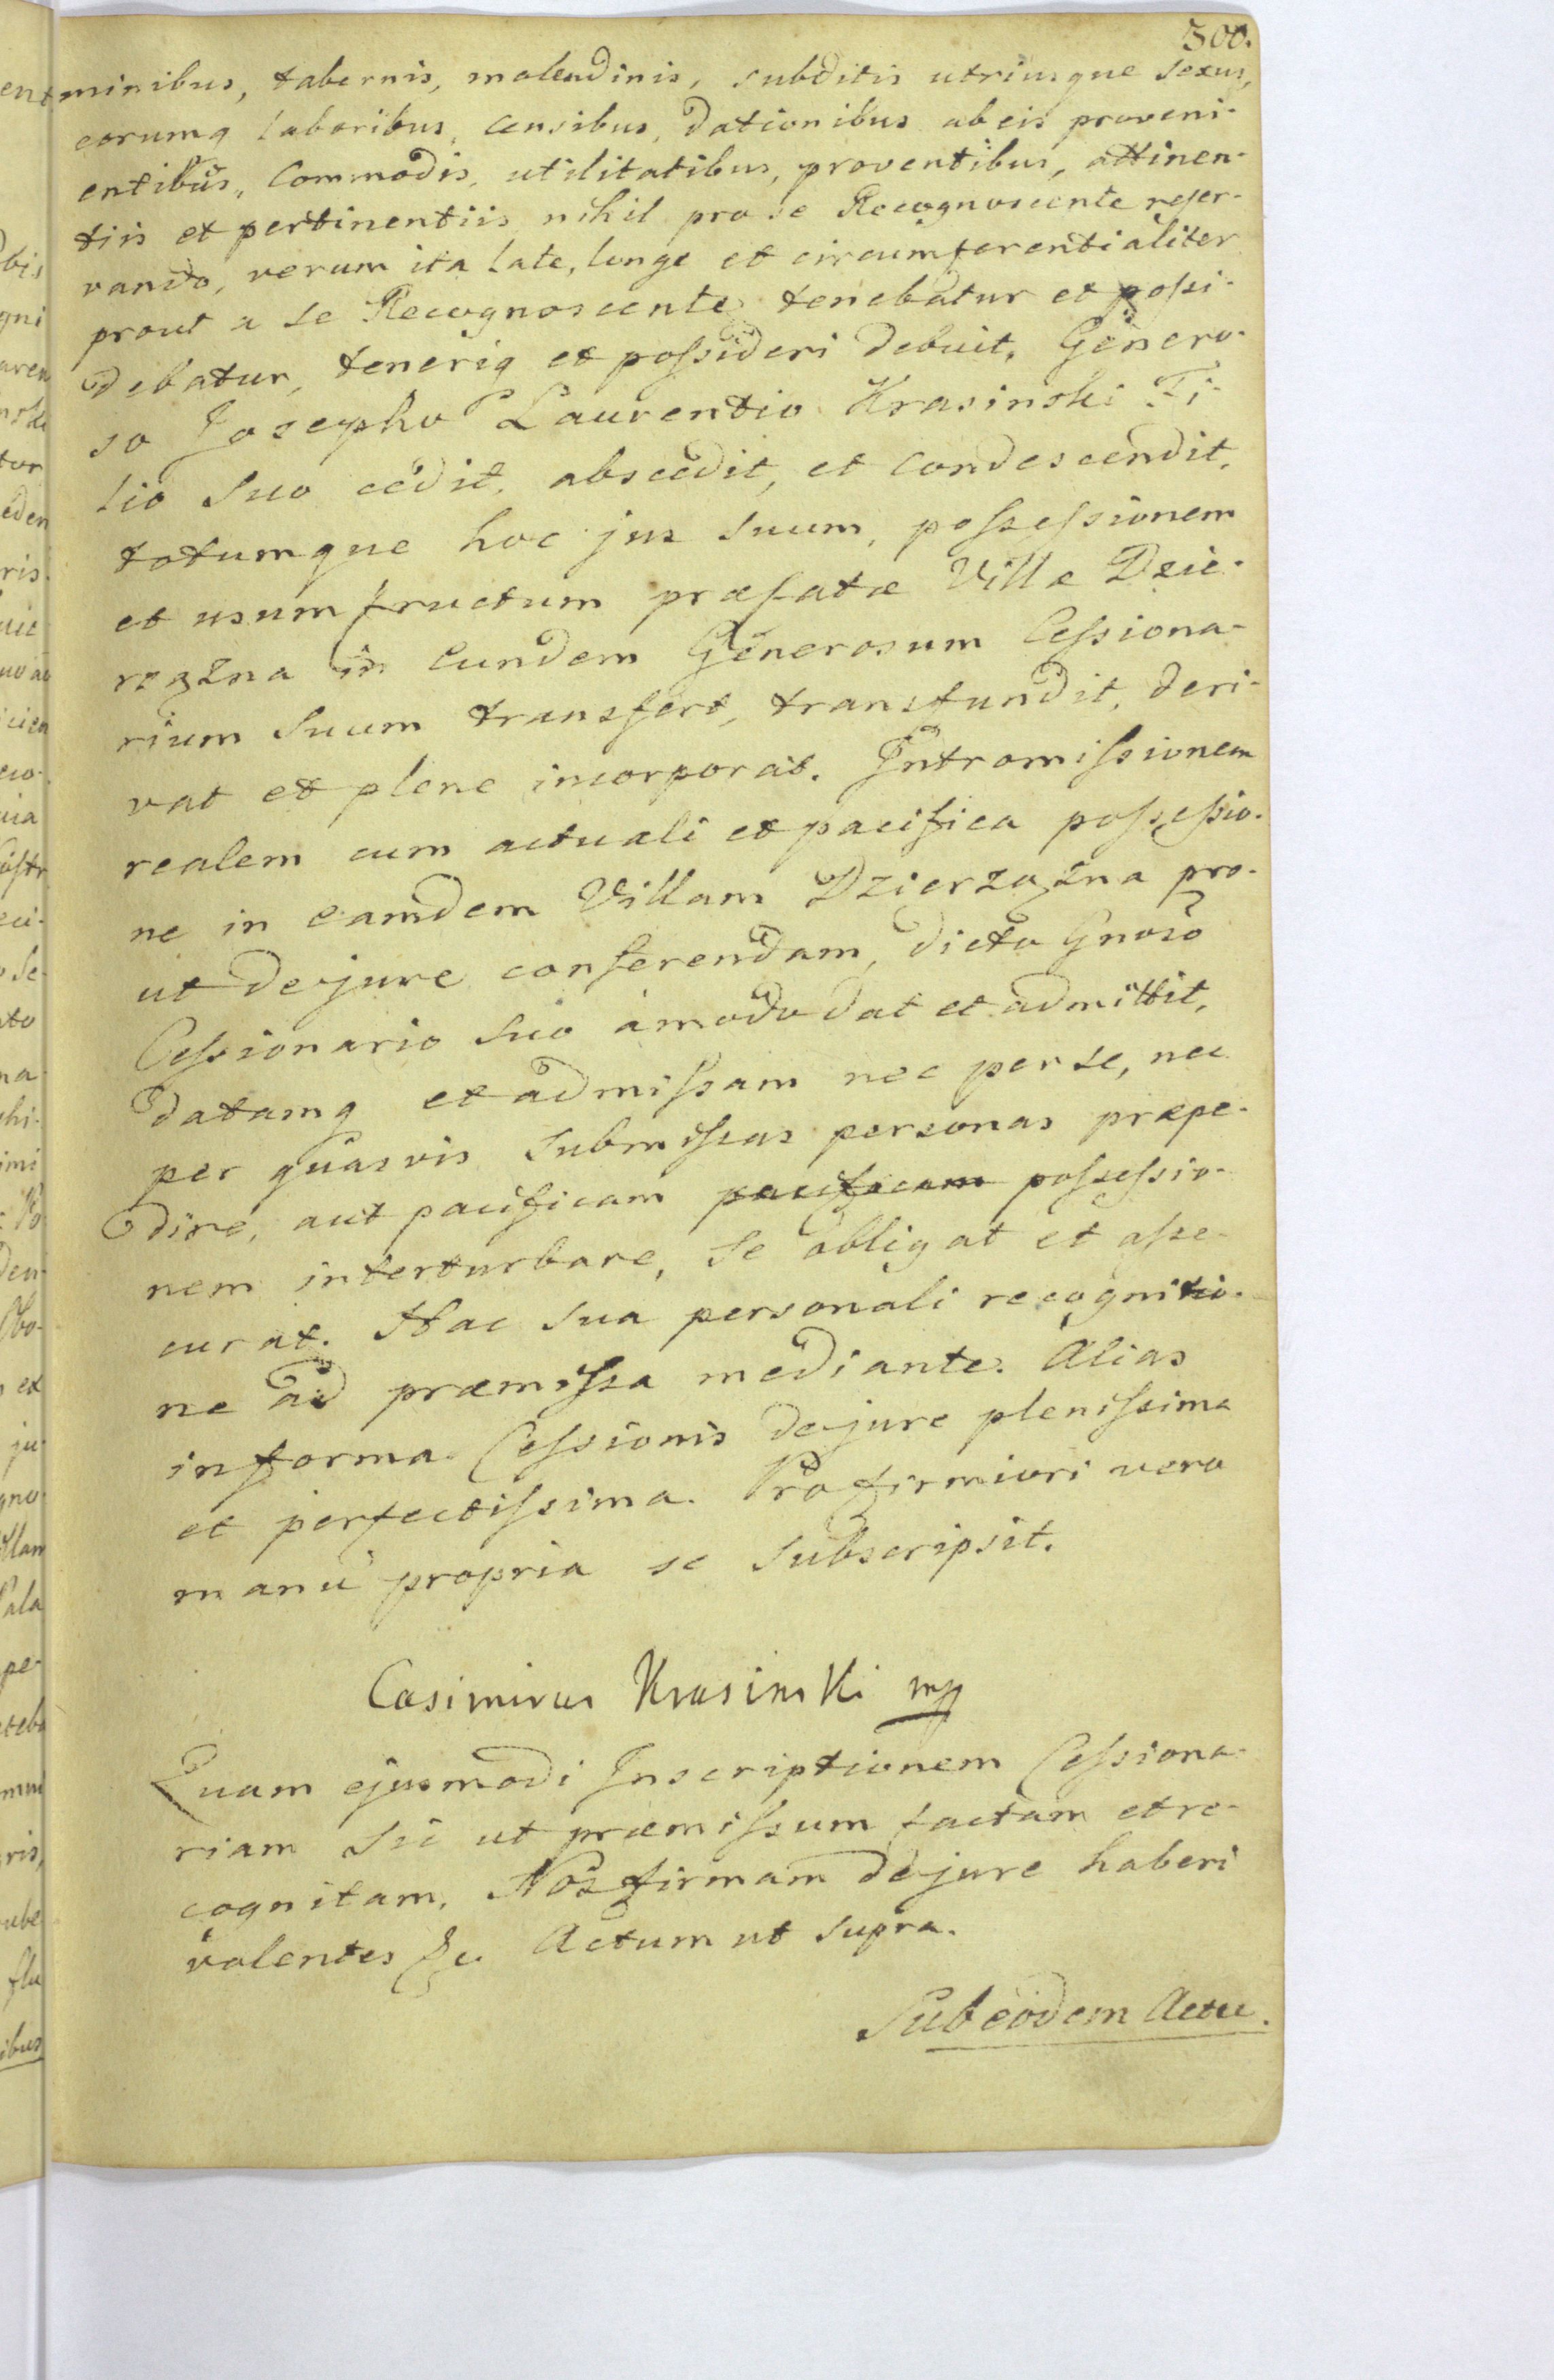 300.
minibus, tabernis, molendinis, subditis utriusque sexus,
eorumq laboribus, censibus, dationibus ab eis proveni-
entibus, commodis, utilitatibus, proventibus, attinen-
tiis et pertinentiis nihil pro se Recognoscente reser-
vando, verum ita late, longe et circumferentialiter
prout a se Recognoscente tenebatur et possi-
debatur, teneriq et possideri debuit, Genero-
so Josepho Laurentio Krasinski Fi-
lio Suo cedit, abscedit, et condescendit,
totumque hoc jus suum, possessionem
et usumfructum præfatæ Villæ Dzie-
rzążna in Eundem Generosum Cessiona-
rium Suum transfert, transfundit, deri-
vat et plene incorporat. Intromissionem
realem cum actuali et pacifica possessio-
ne in eamdem Villam Dzierzążna pro-
ut de jure conferendam, dicto Gnoso
Cessionario suo amodo dat et admittit,
datamq et admissam nec per se, nec
per quasvis submissas personas præpe-
dire, aut pacificam pacificam possessio-
nem interturbare, se obligat et asse-
curat. Hac sua personali recognitio-
ne ad præmissa mediante. Alias
in forma Cessionis de jure plenissima
et perfectissima. Pro firmiori vero
manu propria se subscripsit.
Casimirus Krasinski mp
Quam ejusmodi Inscriptionem Cessiona-
riam sic ut præmissum factam et re-
cognitam, Nos firmam de jure haberi
volentes &c. Actum ut supra.
Sub eodem Actu.